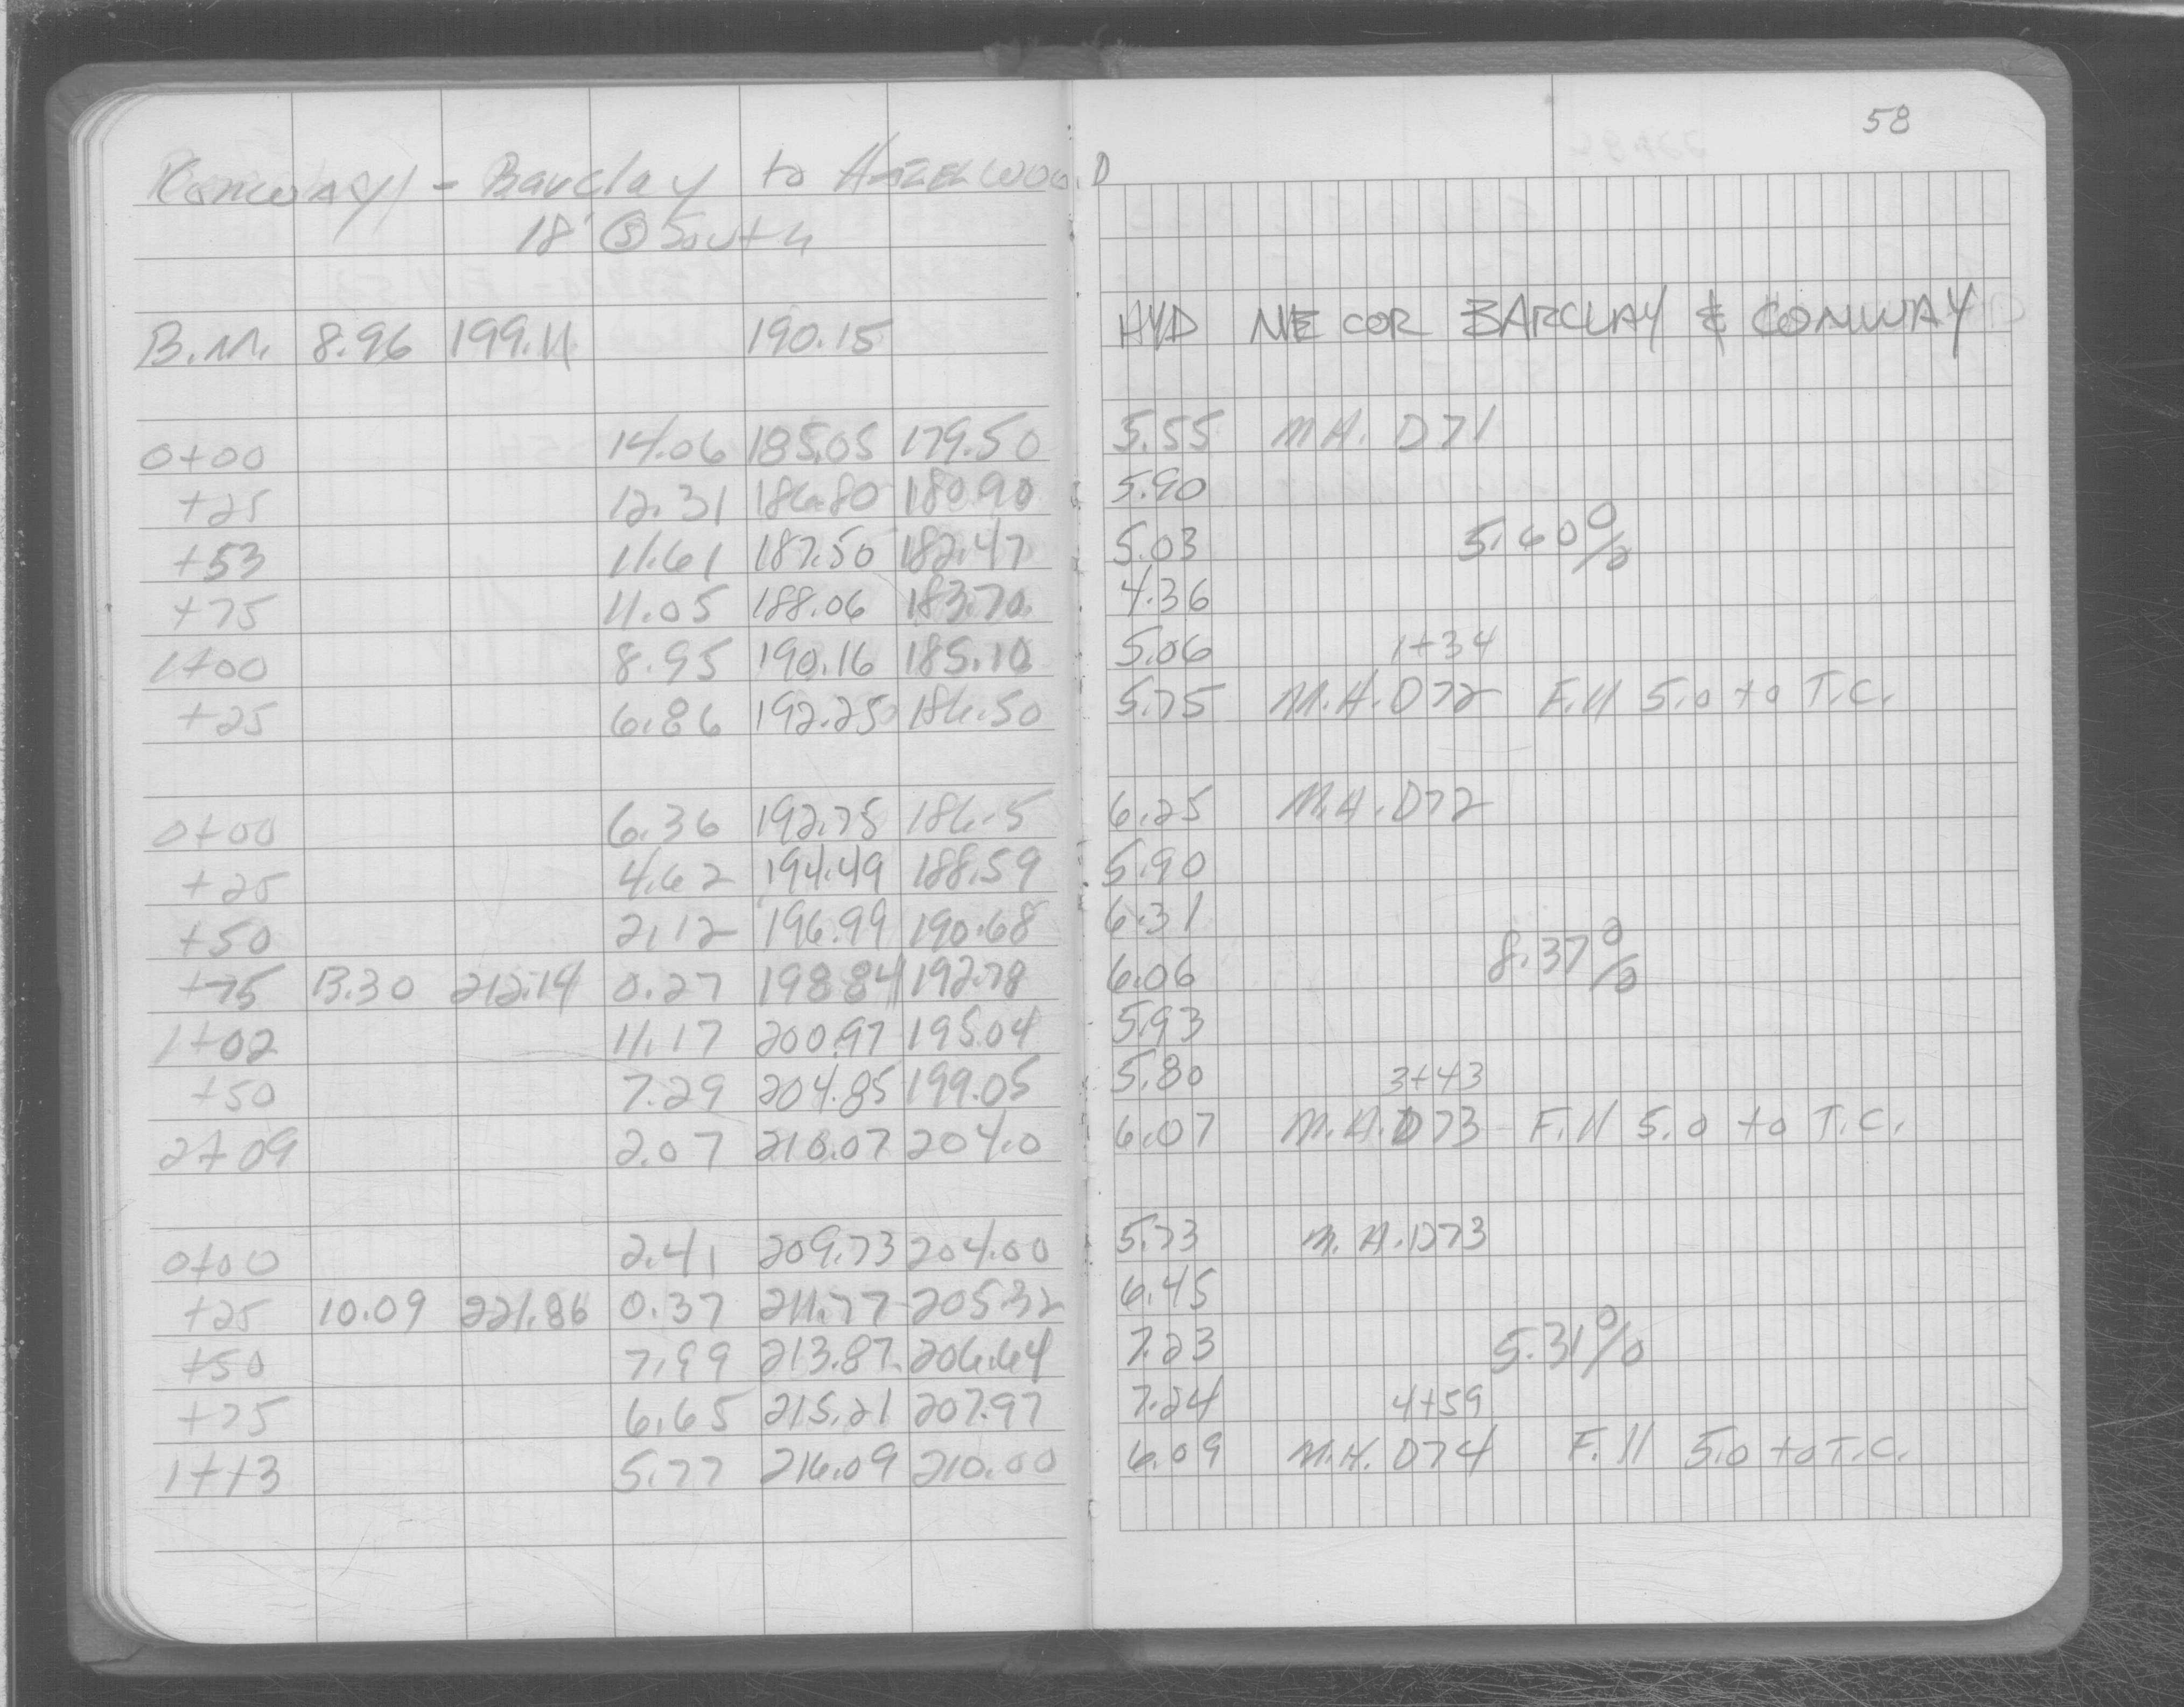 58
Conway - Barclay to HAZELWOOD
18" Ⓢ South
B.M. 8.96 199.11 190.15 HYD NE COR BARCLAY & CONWAY
0+00 14.06 185.05 179.50 5.55 M.H. D71
+25 12.31 186.80 180.90 5.90
+53 11.61 187.50 182.47 5.03 5.60%
+75 11.05 188.06 183.70 4.36
1+00 8.95 190.16 185.10 5.06 1+34
+25 6.86 192.25 186.50 5.75 M.H. D72 Fill 5.0 to T.C.
0+00 6.36 192.75 186.5 6.25 M.H. D72
+25 4.62 194.49 188.59 5.90
+50 2.12 196.99 190.68 6.31
+75 13.30 212.14 0.27 198.84 192.78 6.06 8.37%
1+02 11.17 200.97 195.04 5.93
+50 7.29 204.85 199.05 5.80 3+43
2+09 2.07 210.07 204.0 6.07 M.H. D73 Fill 5.0 to T.C.
0+00 2.41 209.73 204.00 5.73 M.H. D73
+25 10.09 221.86 0.37 211.77 205.32 6.45
+50 7.99 213.87 206.64 7.23 5.31%
+75 6.65 215.21 207.97 7.24 4+59
1+13 5.77 216.09 210.00 6.09 M.H. D74 Fill 5.0 to T.C.